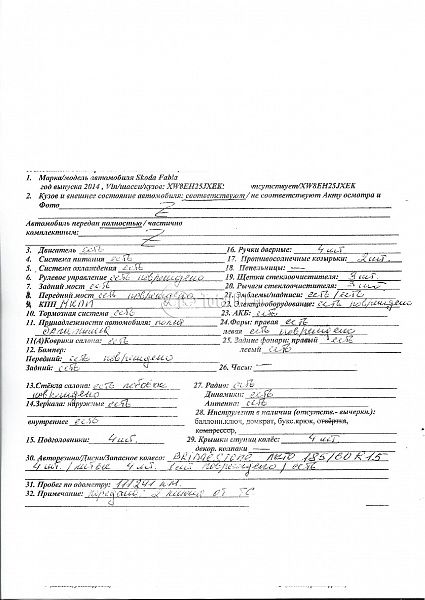 1. Марка/модель автомобиля Skoda Fabia
год выпуска 2014 , Vin/шасси/кузов: XW8EH25JXEK: отсутствует/XW8EH25JXEK
2. Кузов и внешнее состояние автомобиля: соответствуют / не соответствуют Акту осмотра и
Фото
Автомобиль передан полностью / частично
комплектным: Z
3. Двигатель есть 16. Ручки дверные: 4 шт
4. Система питания есть 17. Противосолнечные козырьки: 2 шт.
5. Система охлаждения есть 18. Пепельницы: —
6. Рулевое управление есть повреждено 19. Щетки стеклоочистителя: 3 шт.
7. Задний мост есть 20. Рычаги стеклоочистителя: 3 шт
8. Передний мост есть повреждено 21. Эмблемы/надписи: есть / есть
9. КПП МКПП 22. Электрооборудование: есть повреждено
10. Тормозная система есть 23. АКБ: есть
11. Принадлежности автомобиля: 24.Фары: правая есть
левая есть повреждено
11(А)Коврики салона: есть 25. Задние фонари: правый есть
12. Бампер: левый есть
Передний: есть повреждено
Задний: есть 26. Часы: —
13.Стёкла салона: есть лобовое 27. Радио: есть
повреждено Динамики: есть
14.Зеркала: наружные есть Антенна: есть
28. Инструмент в наличии (отсутств.- вычерк.):
внутреннее есть баллонн.ключ, домкрат, букс.крюк, отвёртка,
компрессор,
15. Подголовники: 4 шт. 29. Крышки ступиц колёс: 4 шт
декор. колпаки —
30. Авторезина/Диски/Запасное колесо: BRIDGESTONE 185/60 R15
4 шт. / литые 4 шт. 1 шт повреждено / есть
31. Пробег по одометру: 111241 км.
32. Примечание: передано: 2 ключа от ТС